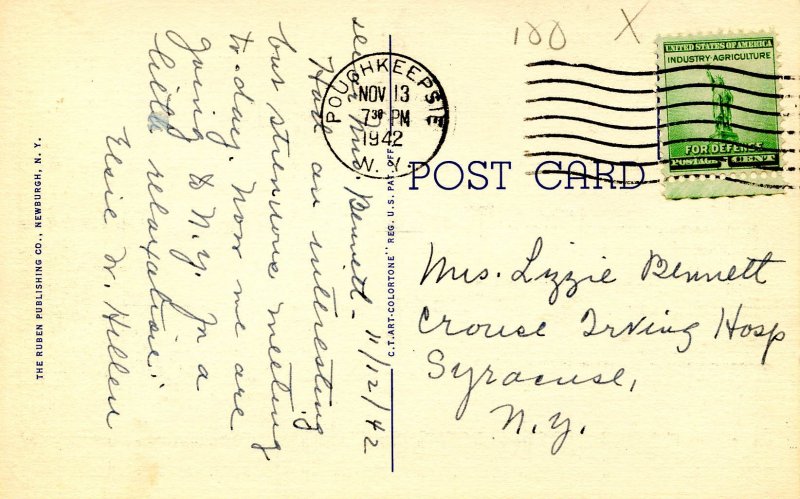 Dear Mrs. Bennett – 11/12/42
Had an interesting
but strenuous meeting
to-day. Now we are
going to N.Y. for a
little relaxation!
Elsie W. Hellen
THE RUBEN PUBLISHING CO., NEWBURGH, N. Y.
C.T. ART-COLORTONE" REG. U.S. PAT. OFF.
100 X
POUGHKEEPSIE
NOV 13
7 30 PM
1942
N. Y.
UNITED STATES OF AMERICA
INDUSTRY·AGRICULTURE
FOR DEFENSE
POSTAGE 1 CENT
POST CARD
Mrs. Lizzie Bennett
Crouse Irving Hosp
Syracuse,
N.Y.